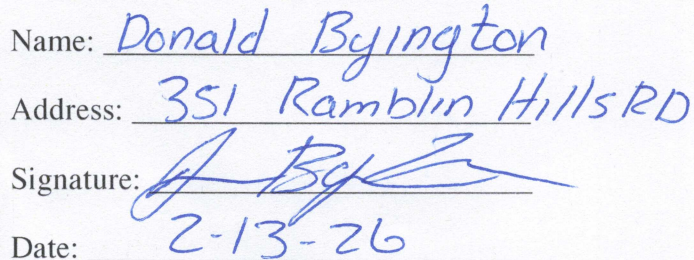 Name: Donald Byington
Address: 351 Ramblin Hills RD
Signature:
Date: 2-13-26